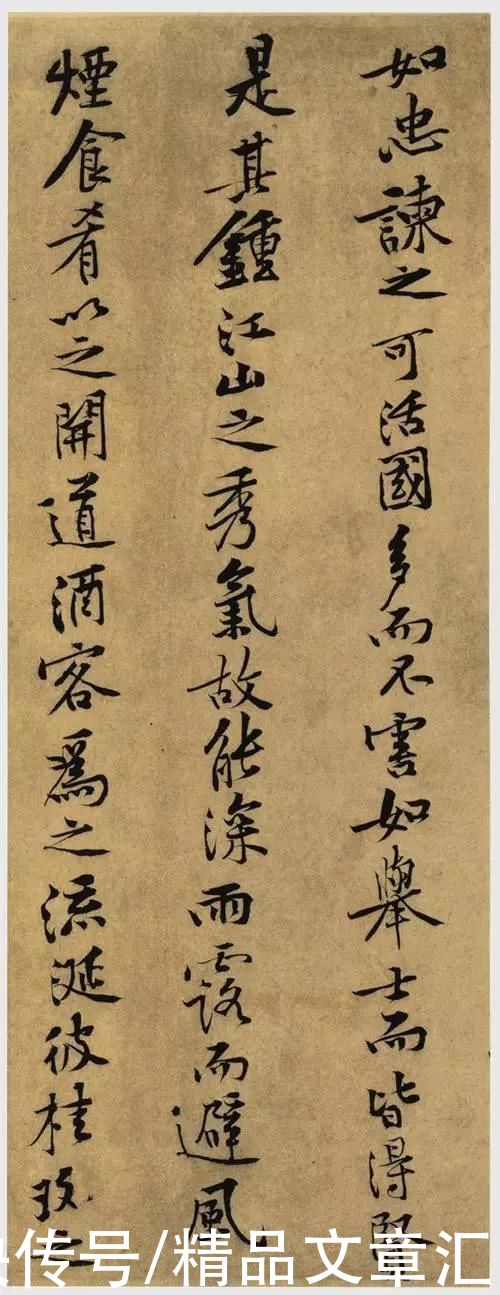 如忠諫之可活國多而不害如舉士而皆得賢
是其鍾江山之秀氣故能深雨露而避風
煙食肴以之開道酒客爲之流涎彼桂玫之
快传号/精品文章汇